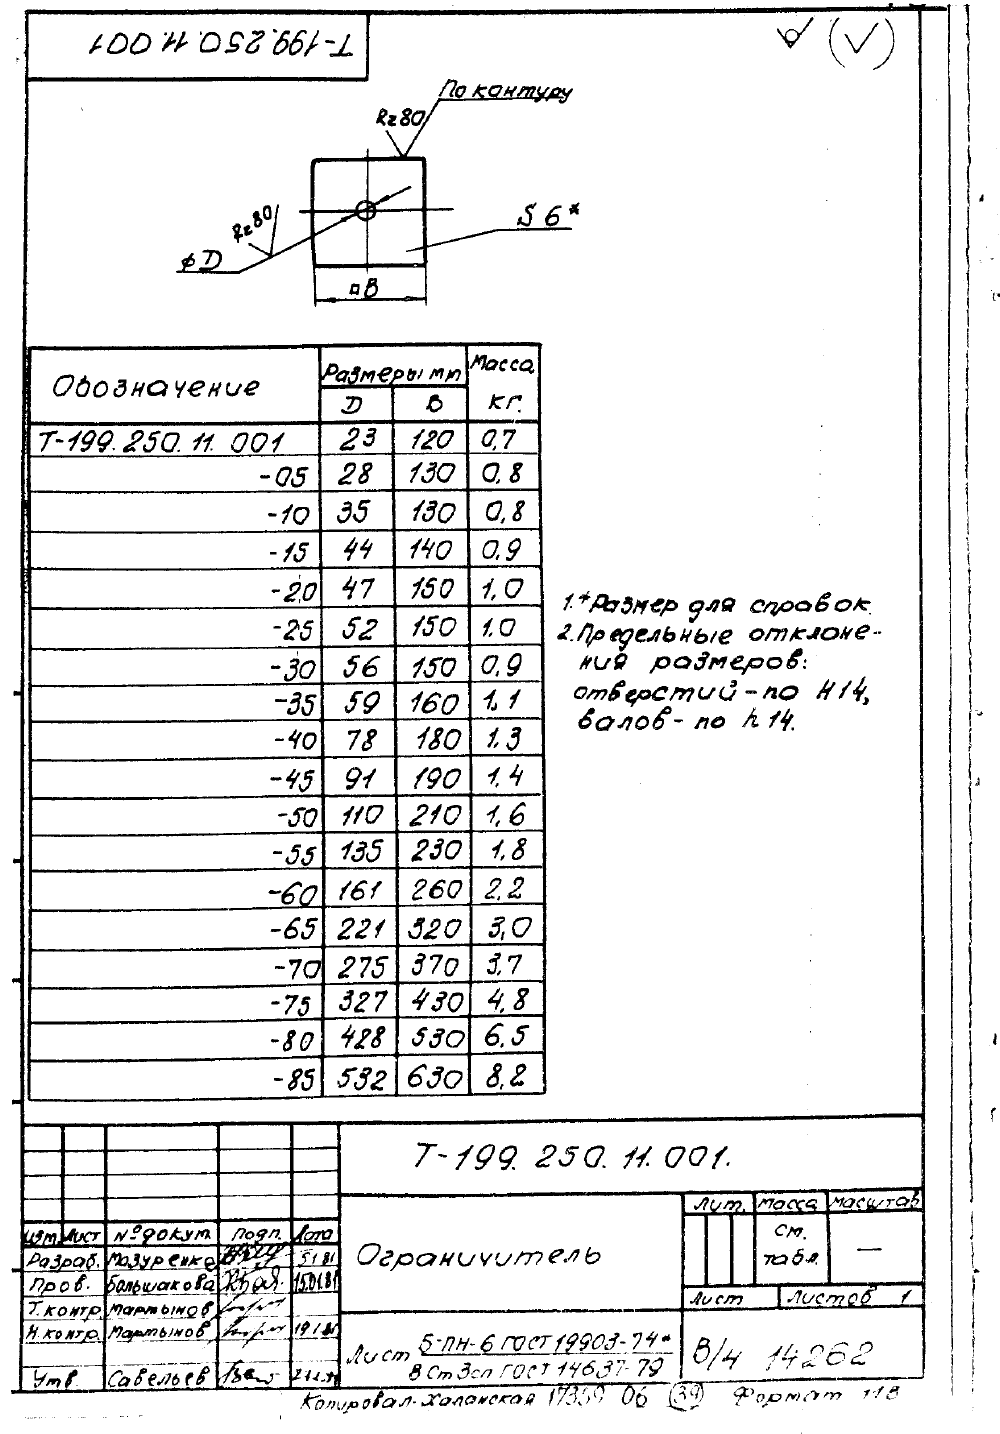 Т-199.250.11.001
По контуру
Rz80
Rz80
S6*
φD
□В
Обозначение Размеры мм Масса кг.
D В
Т-199.250.11.001 23 120 0,7
-05 28 130 0,8
-10 35 130 0,8
-15 44 140 0,9
-20 47 150 1,0
-25 52 150 1,0
-30 56 150 0,9
-35 59 160 1,1
-40 78 180 1,3
-45 91 190 1,4
-50 110 210 1,6
-55 135 230 1,8
-60 161 260 2,2
-65 221 320 3,0
-70 275 370 3,7
-75 327 430 4,8
-80 428 530 6,5
-85 532 630 8,2
1.*Размер для справок.
2.Предельные отклоне-
ния размеров:
отверстий-по Н14,
валов-по h14.
Т-199.250.11.001.
Лит. Масса Масштаб
Ст. табл. —
Изм. Лист № докум. Подп. Дата
Разраб. Мазуренко 5.1.81
Пров. Большакова 15.01.81
Т.контр. Мартынов
Н.контр. Мартынов 19.1.81
Утв. Савельев
Ограничитель
Лист Листов 1
Лист Б-ПН-6 ГОСТ 19903-74*
ВСт3сп ГОСТ 14637-79
В/ч 14262
Копировал-Халанская 17359 06 39 Формат 11В